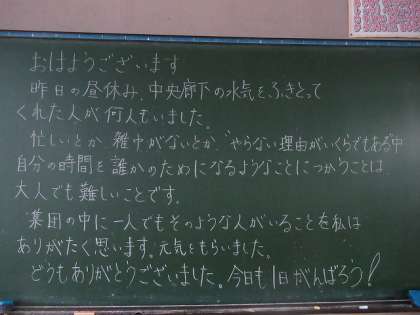 おはようございます
昨日の昼休み、中央廊下の水気をふきとって
くれた人が何人もいました。
忙しいとか、雑巾がないとか、"やらない理由がいくらでもある"中
自分の時間を誰かのためになるようなことにつかうことは、
大人でも難しいことです。
集団の中に一人でもそのような人がいることを私は
ありがたく思います。元気をもらいました。
どうもありがとうございました。今日も1日がんばろう!